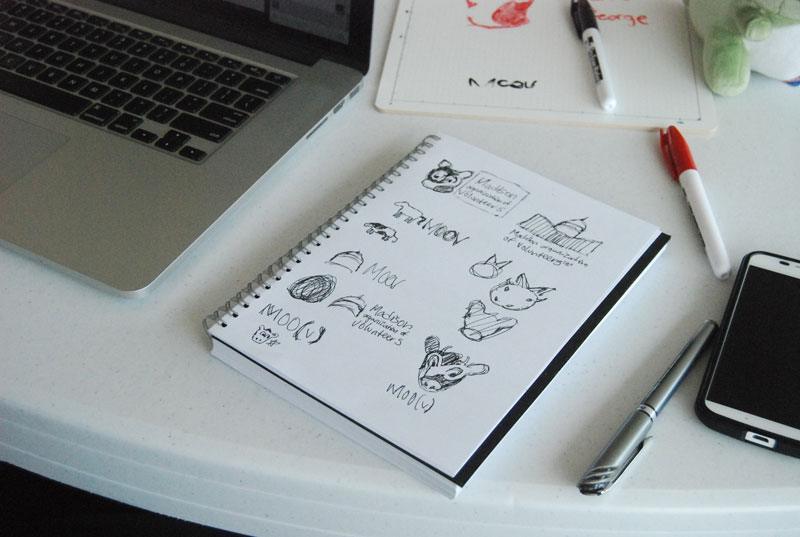 George
Moov
Madison
organization of
Volunteers
Madison organization
of Volunteers
MOOV
Moov
Madison
organization of
Volunteers
MOO(v)
MOO(v)